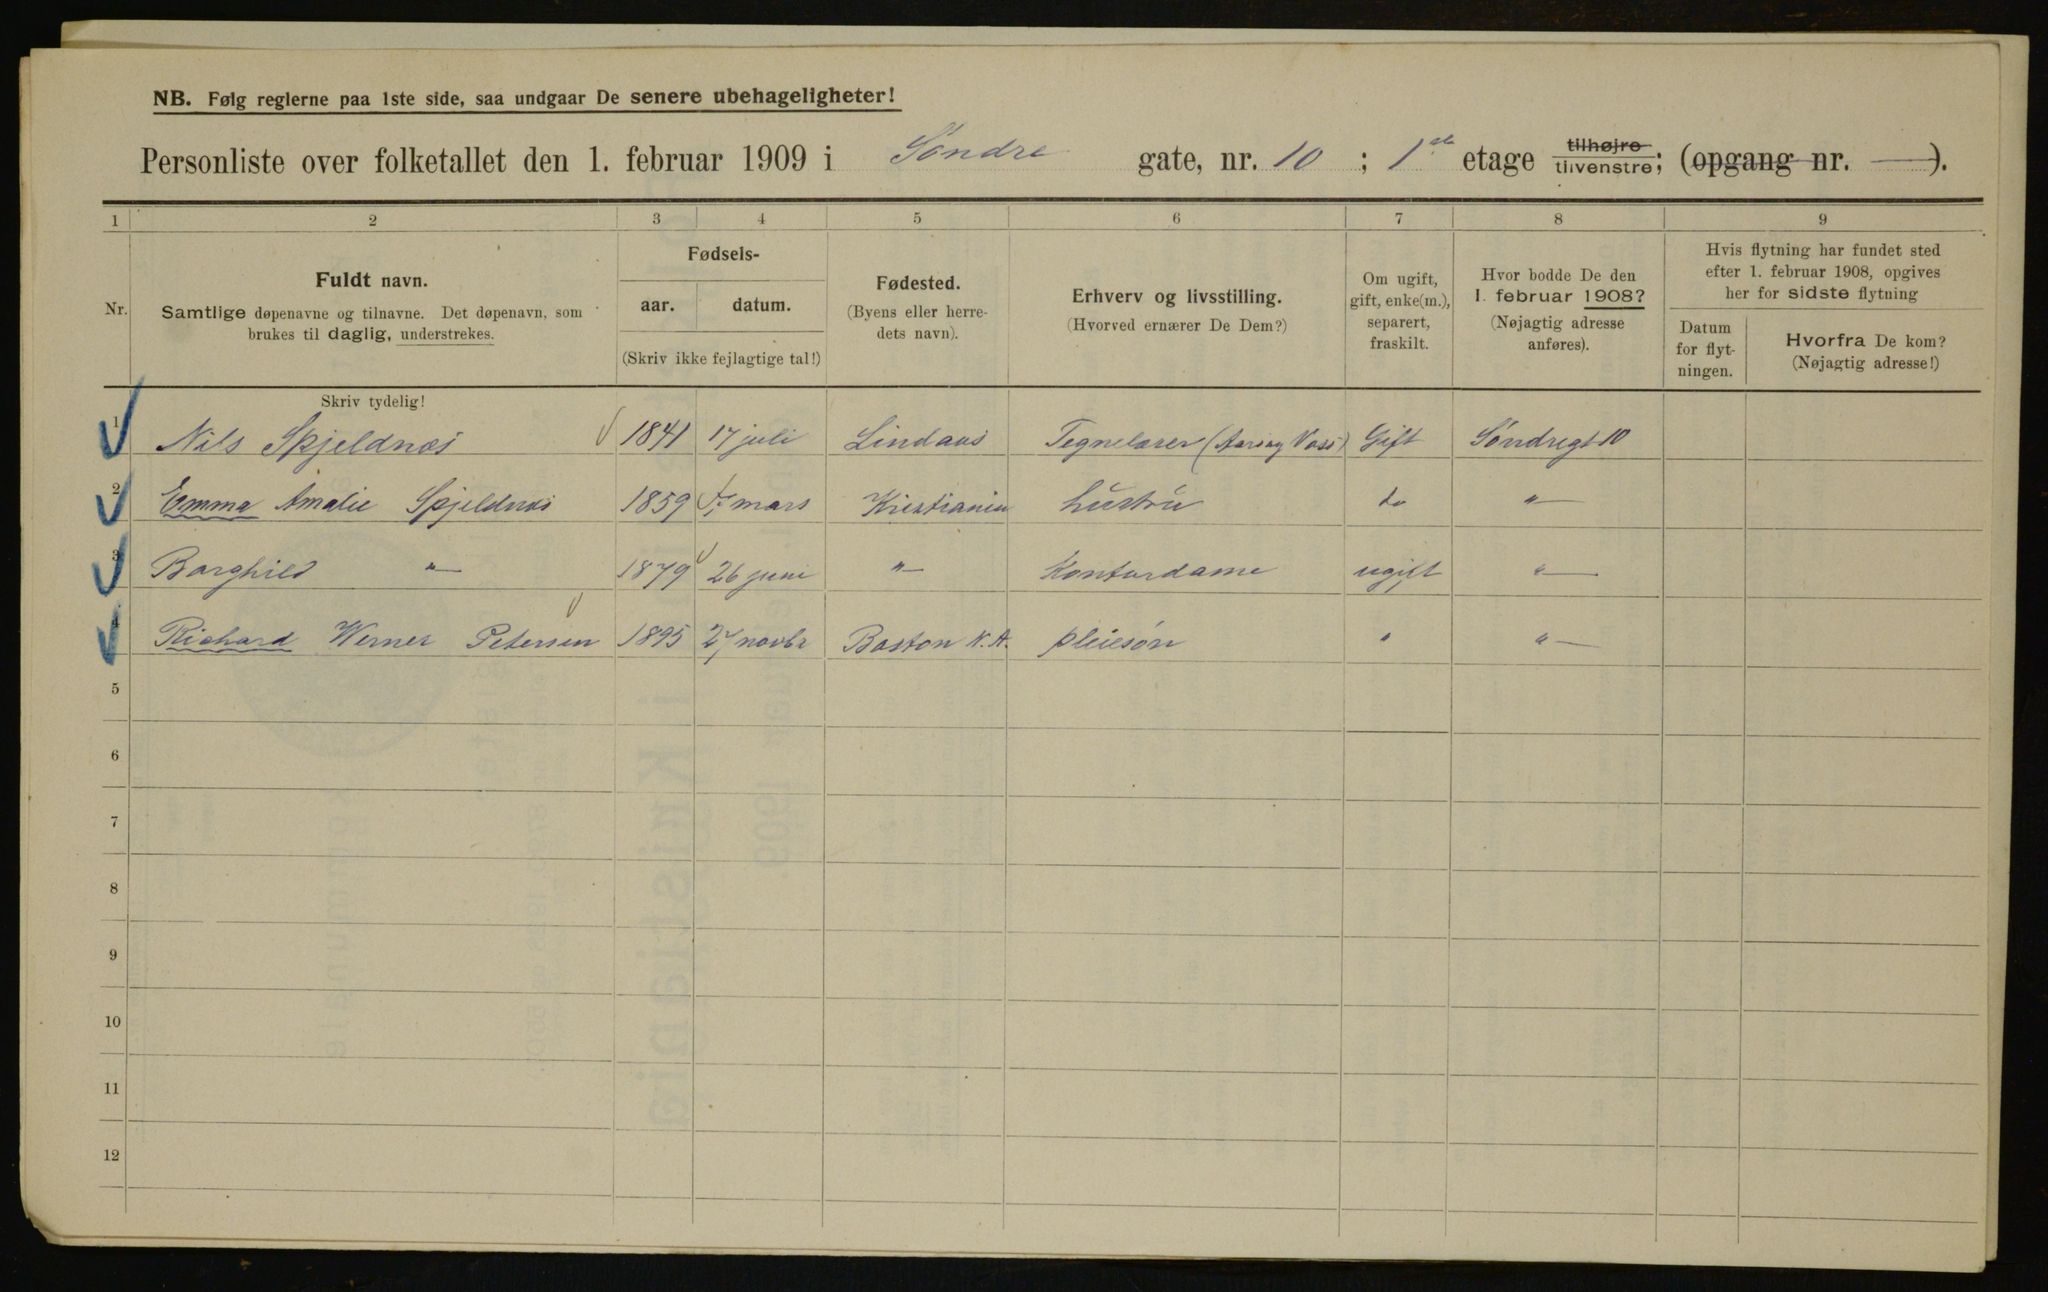 NB. Følg reglerne paa 1ste side, saa undgaar De senere ubehageligheter!
Personliste over folketallet den 1. februar 1909 i Søndre gate, nr. 10 ; 1ste etage tilhøjre tilvenstre; (opgang nr. — ).
1 2 3 4 5 6 7 8 9
Nr.
Fuldt navn.
Samtlige døpenavne og tilnavne. Det døpenavn, som
brukes til daglig, understrekes.
Fødsels-
aar. datum.
(Skriv ikke fejlagtige tal!)
Fødested.
(Byens eller herre-
dets navn).
Erhverv og livsstilling.
(Hvorved ernærer De Dem?)
Om ugift,
gift, enke(m.),
separert,
fraskilt.
Hvor bodde De den
1. februar 1908?
(Nøjagtig adresse
anføres).
Hvis flytning har fundet sted
efter 1. februar 1908, opgives
her for sidste flytning
Datum
for flyt-
ningen.
Hvorfra De kom?
(Nøjagtig adresse!)
Skriv tydelig!
1 Nils Skjeldnæs 1841 17 juli Lindaas Tegnelærer Gift Søndregt 10
2 Emma Amalie Skjeldnæs 1859 mars Kristiania hustru do "
3 Borghild " 1879 26 juni " Kontordame ugift "
4 Richard Werner Petersen 1895 27 novbr Boston N.A. pleiesøn " "
5
6
7
8
9
10
11
12